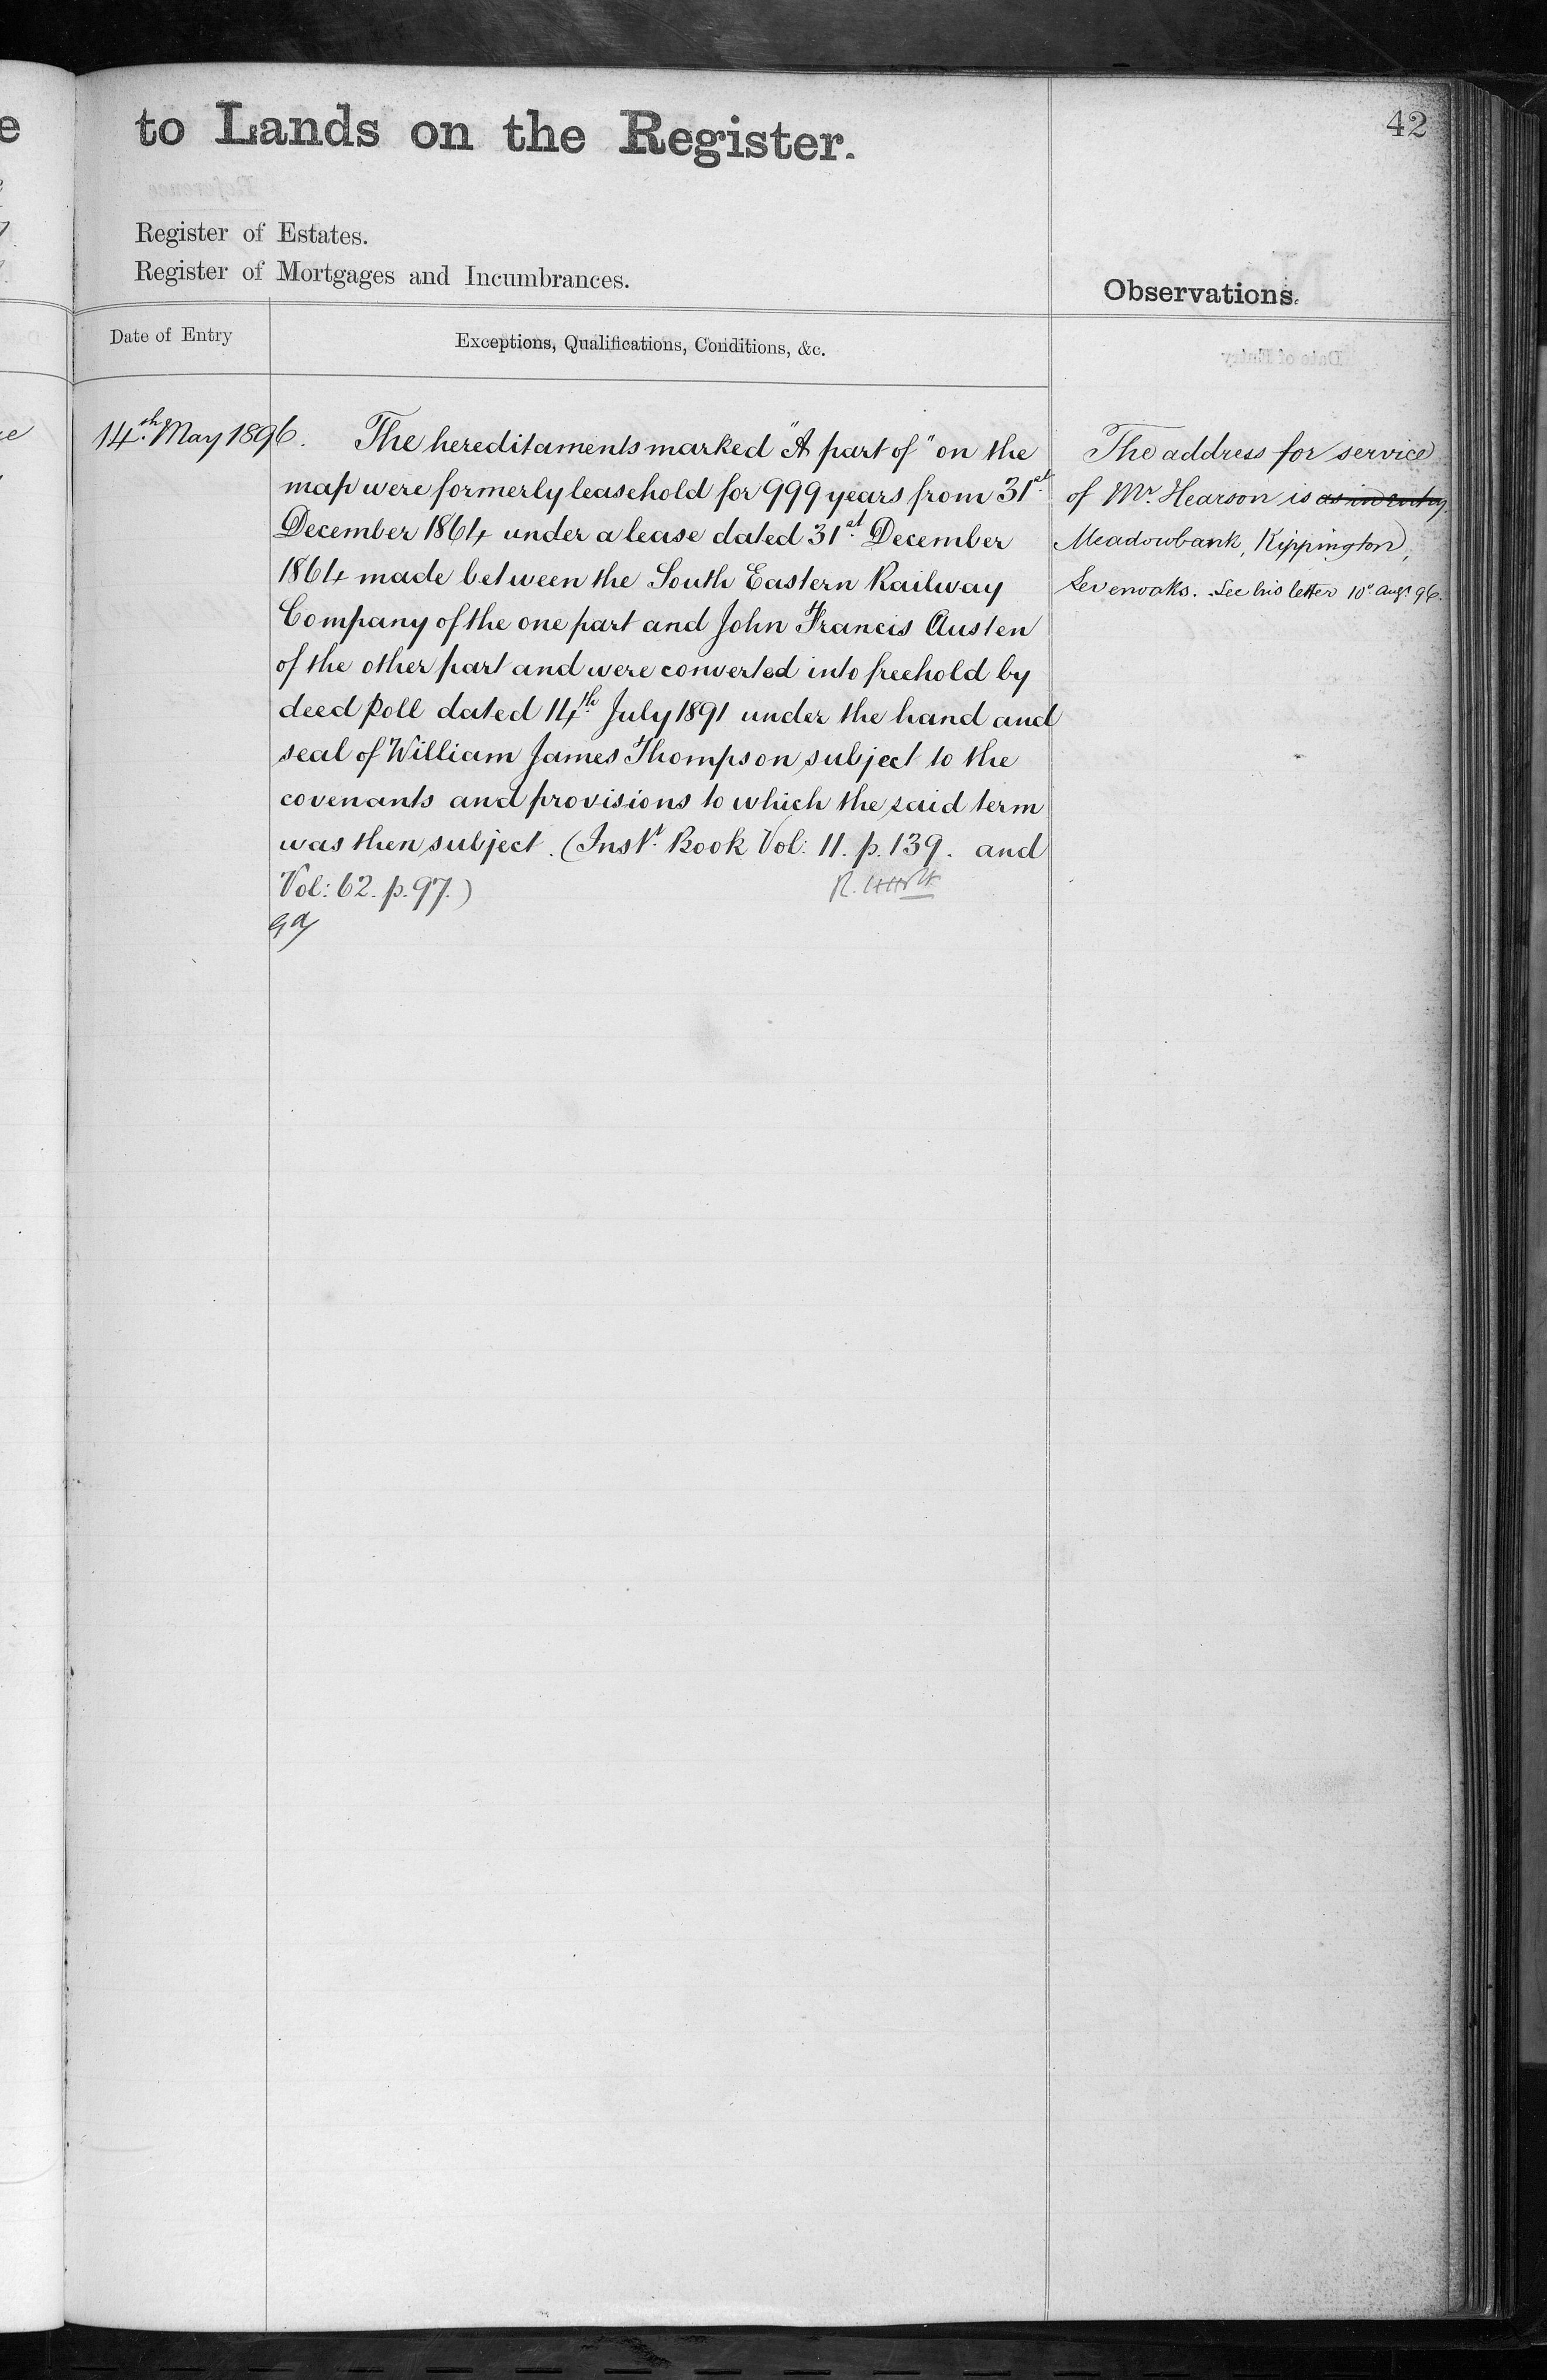 to Lands on the Register.
42
Register of Estates.
Register of Mortgages and Incumbrances.
Observations.
Date of Entry
Exceptions, Qualifications, Conditions, &c.
14th May 1896.
The hereditaments marked "A part of" on the
map were formerly leasehold for 999 years from 31st
December 1864 under a lease dated 31st December
1864 made between the South Eastern Railway
Company of the one part and John Francis Austen
of the other part and were converted into freehold by
deed poll dated 14th July 1891 under the hand and
seal of William James Thompson subject to the
covenants and provisions to which the said term
was then subject. (Inst. Book Vol: 11. p. 139. and
Vol: 62. p. 97.)
The address for service
of Mr. Hearson is as in entry.
Meadowbank, Kippington,
Sevenoaks. See his letter 10th Augt 96.